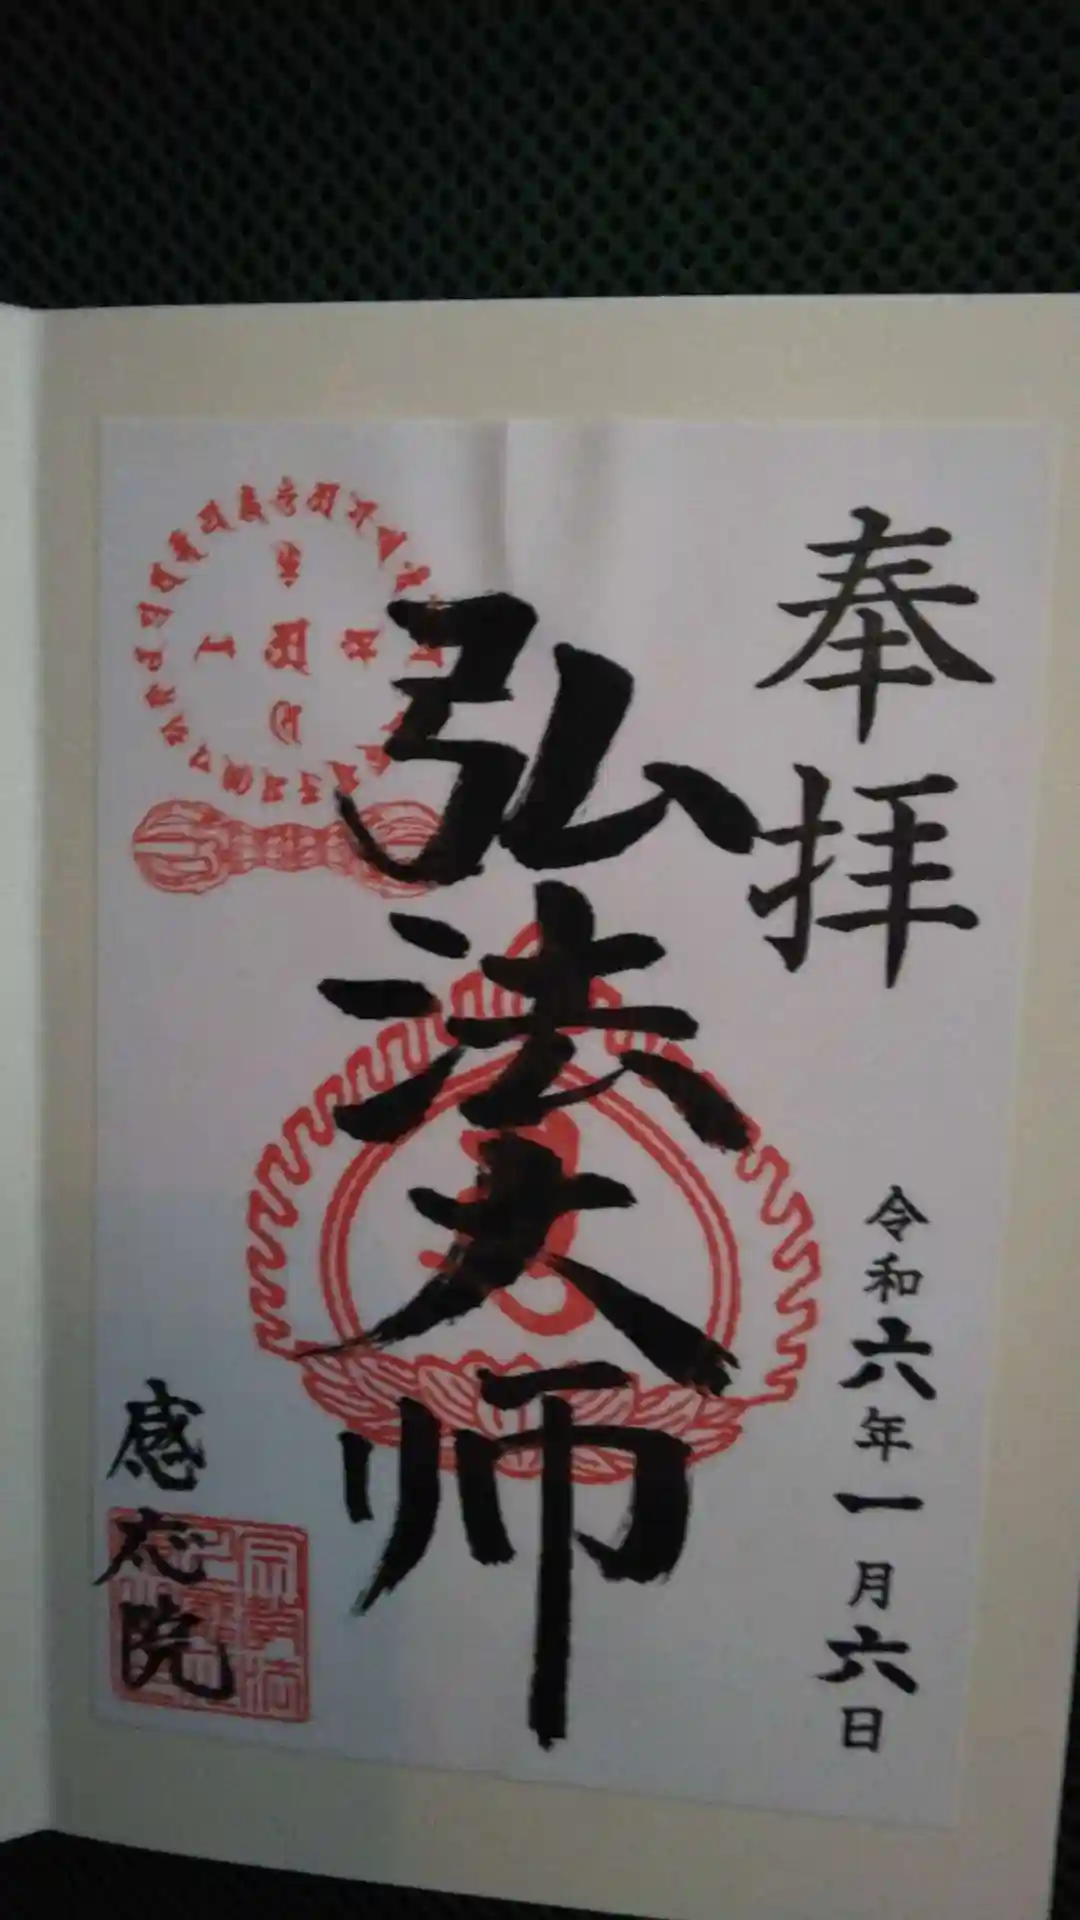 奉拝
令和六年一月六日
弘法大师
感応院